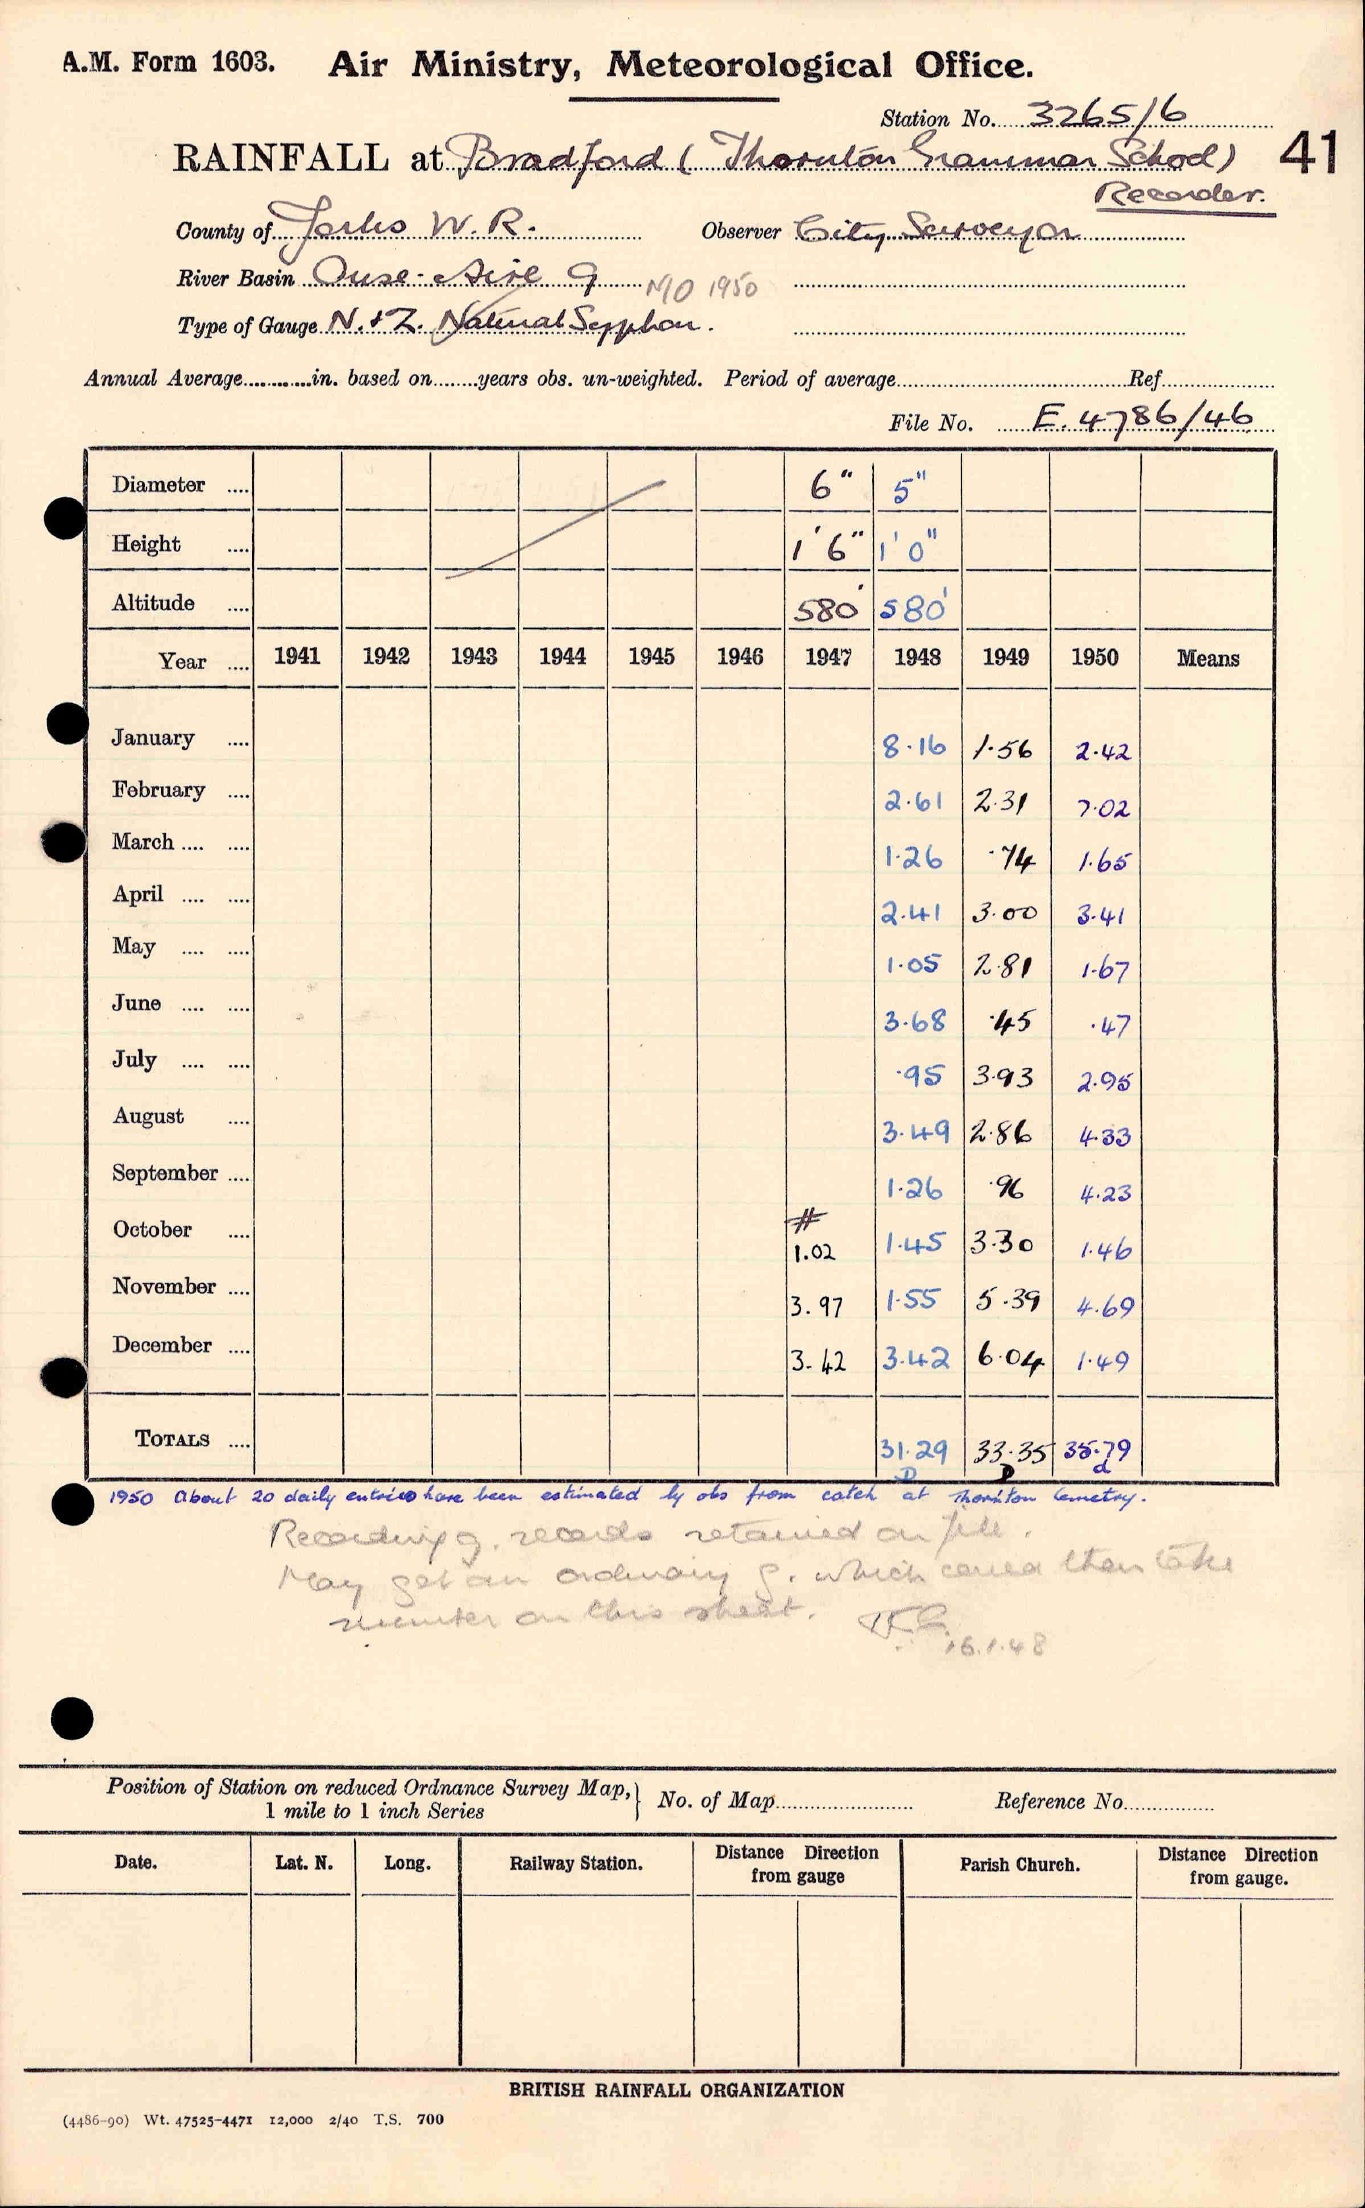 A.M. Form 1603. Air Ministry, Meteorological Office.
Station No. 3265/6
RAINFALL at Bradford (Thornton Grammar School) 41
Recorder.
County of Yorks W.R. Observer City Surveyor
River Basin Ouse-Aire 9 MO 1950
Type of Gauge N. & Z. Natural Syphon.
Annual Average............in. based on........years obs. un-weighted. Period of average........Ref........
File No. E. 4786/46
Diameter .... 6" 5"
Height .... 1' 6" 1' 0"
Altitude .... 580' 580'
Year .... 1941 1942 1943 1944 1945 1946 1947 1948 1949 1950 Means
January .... 8.16 1.56 2.42
February .... 2.61 2.31 7.02
March .... .... 1.26 .74 1.65
April .... .... 2.41 3.00 3.41
May .... .... 1.05 2.81 1.67
June .... .... 3.68 .45 .47
July .... .... .95 3.93 2.95
August .... 3.49 2.86 4.33
September .... 1.26 .96 4.23
#
October .... 1.02 1.45 3.30 1.46
November .... 3.97 1.55 5.39 4.69
December .... 3.42 3.42 6.04 1.49
TOTALS .... 31.29 33.35 35.79
D D d
1950 About 20 daily entries have been estimated by obs from catch at Thornton Cemetry.
Recording g. records retained on file.
May get an ordinary g. which could then take
number on this sheet.
16.1.48
Position of Station on reduced Ordnance Survey Map,} No. of Map........ Reference No........
1 mile to 1 inch Series
Date. Lat. N. Long. Railway Station. Distance Direction from gauge Parish Church. Distance Direction from gauge.
BRITISH RAINFALL ORGANIZATION
(4486-90) Wt. 47525-4471 12,000 2/40 T.S. 700